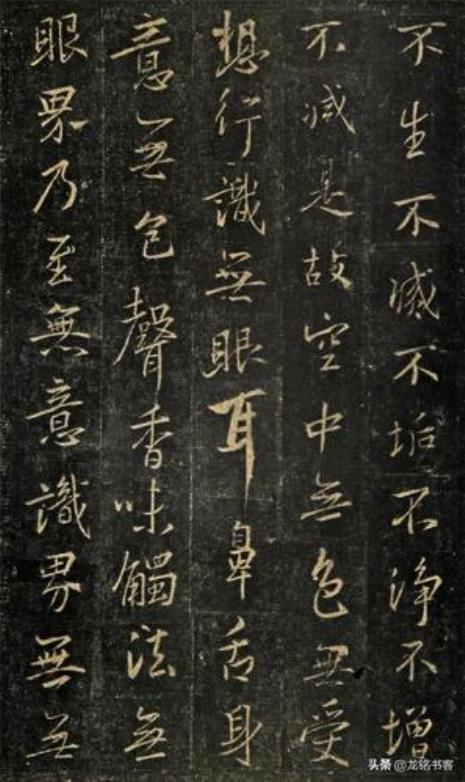 不生不滅不垢不淨不增
不減是故空中無色無受
想行識無眼耳鼻舌身
意無色聲香味觸法無
眼界乃至無意識界無無
头条 @龙铭书客